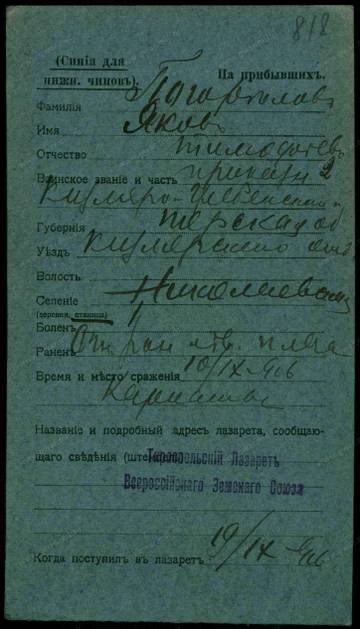 818
(Синія для
нижн. чиновъ).
На прибывшихъ.
Фамилія Погорѣловъ
Имя Яковъ
Отчество Тимофѣевъ
Воинское званіе и часть приказн 2
Кизляро-Гребенскій п
Губернія Терская об
Уѣздъ Кизлярскаго отд
Волость
Селеніе Николаевская
(деревня, станица)
Боленъ
Раненъ лѣв. плеча
Время и мѣсто сраженія 10/IX
Названіе и подробный адресъ лазарета, сообщаю-
щаго свѣдѣнія
Тарнопольскій Лазаретъ
Всероссійскаго Земскаго Союза
Когда поступилъ въ лазаретъ 19/IX